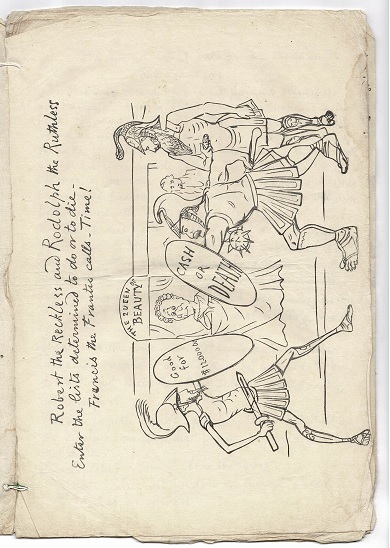 Robert the Reckless and Rodolph the Ruthless
Enter the lists determined to do or to die-
Francis the Frantic calls-Time!
THE QUEEN OF
BEAUTY
CASH
OR
DEATH
GOOD
for